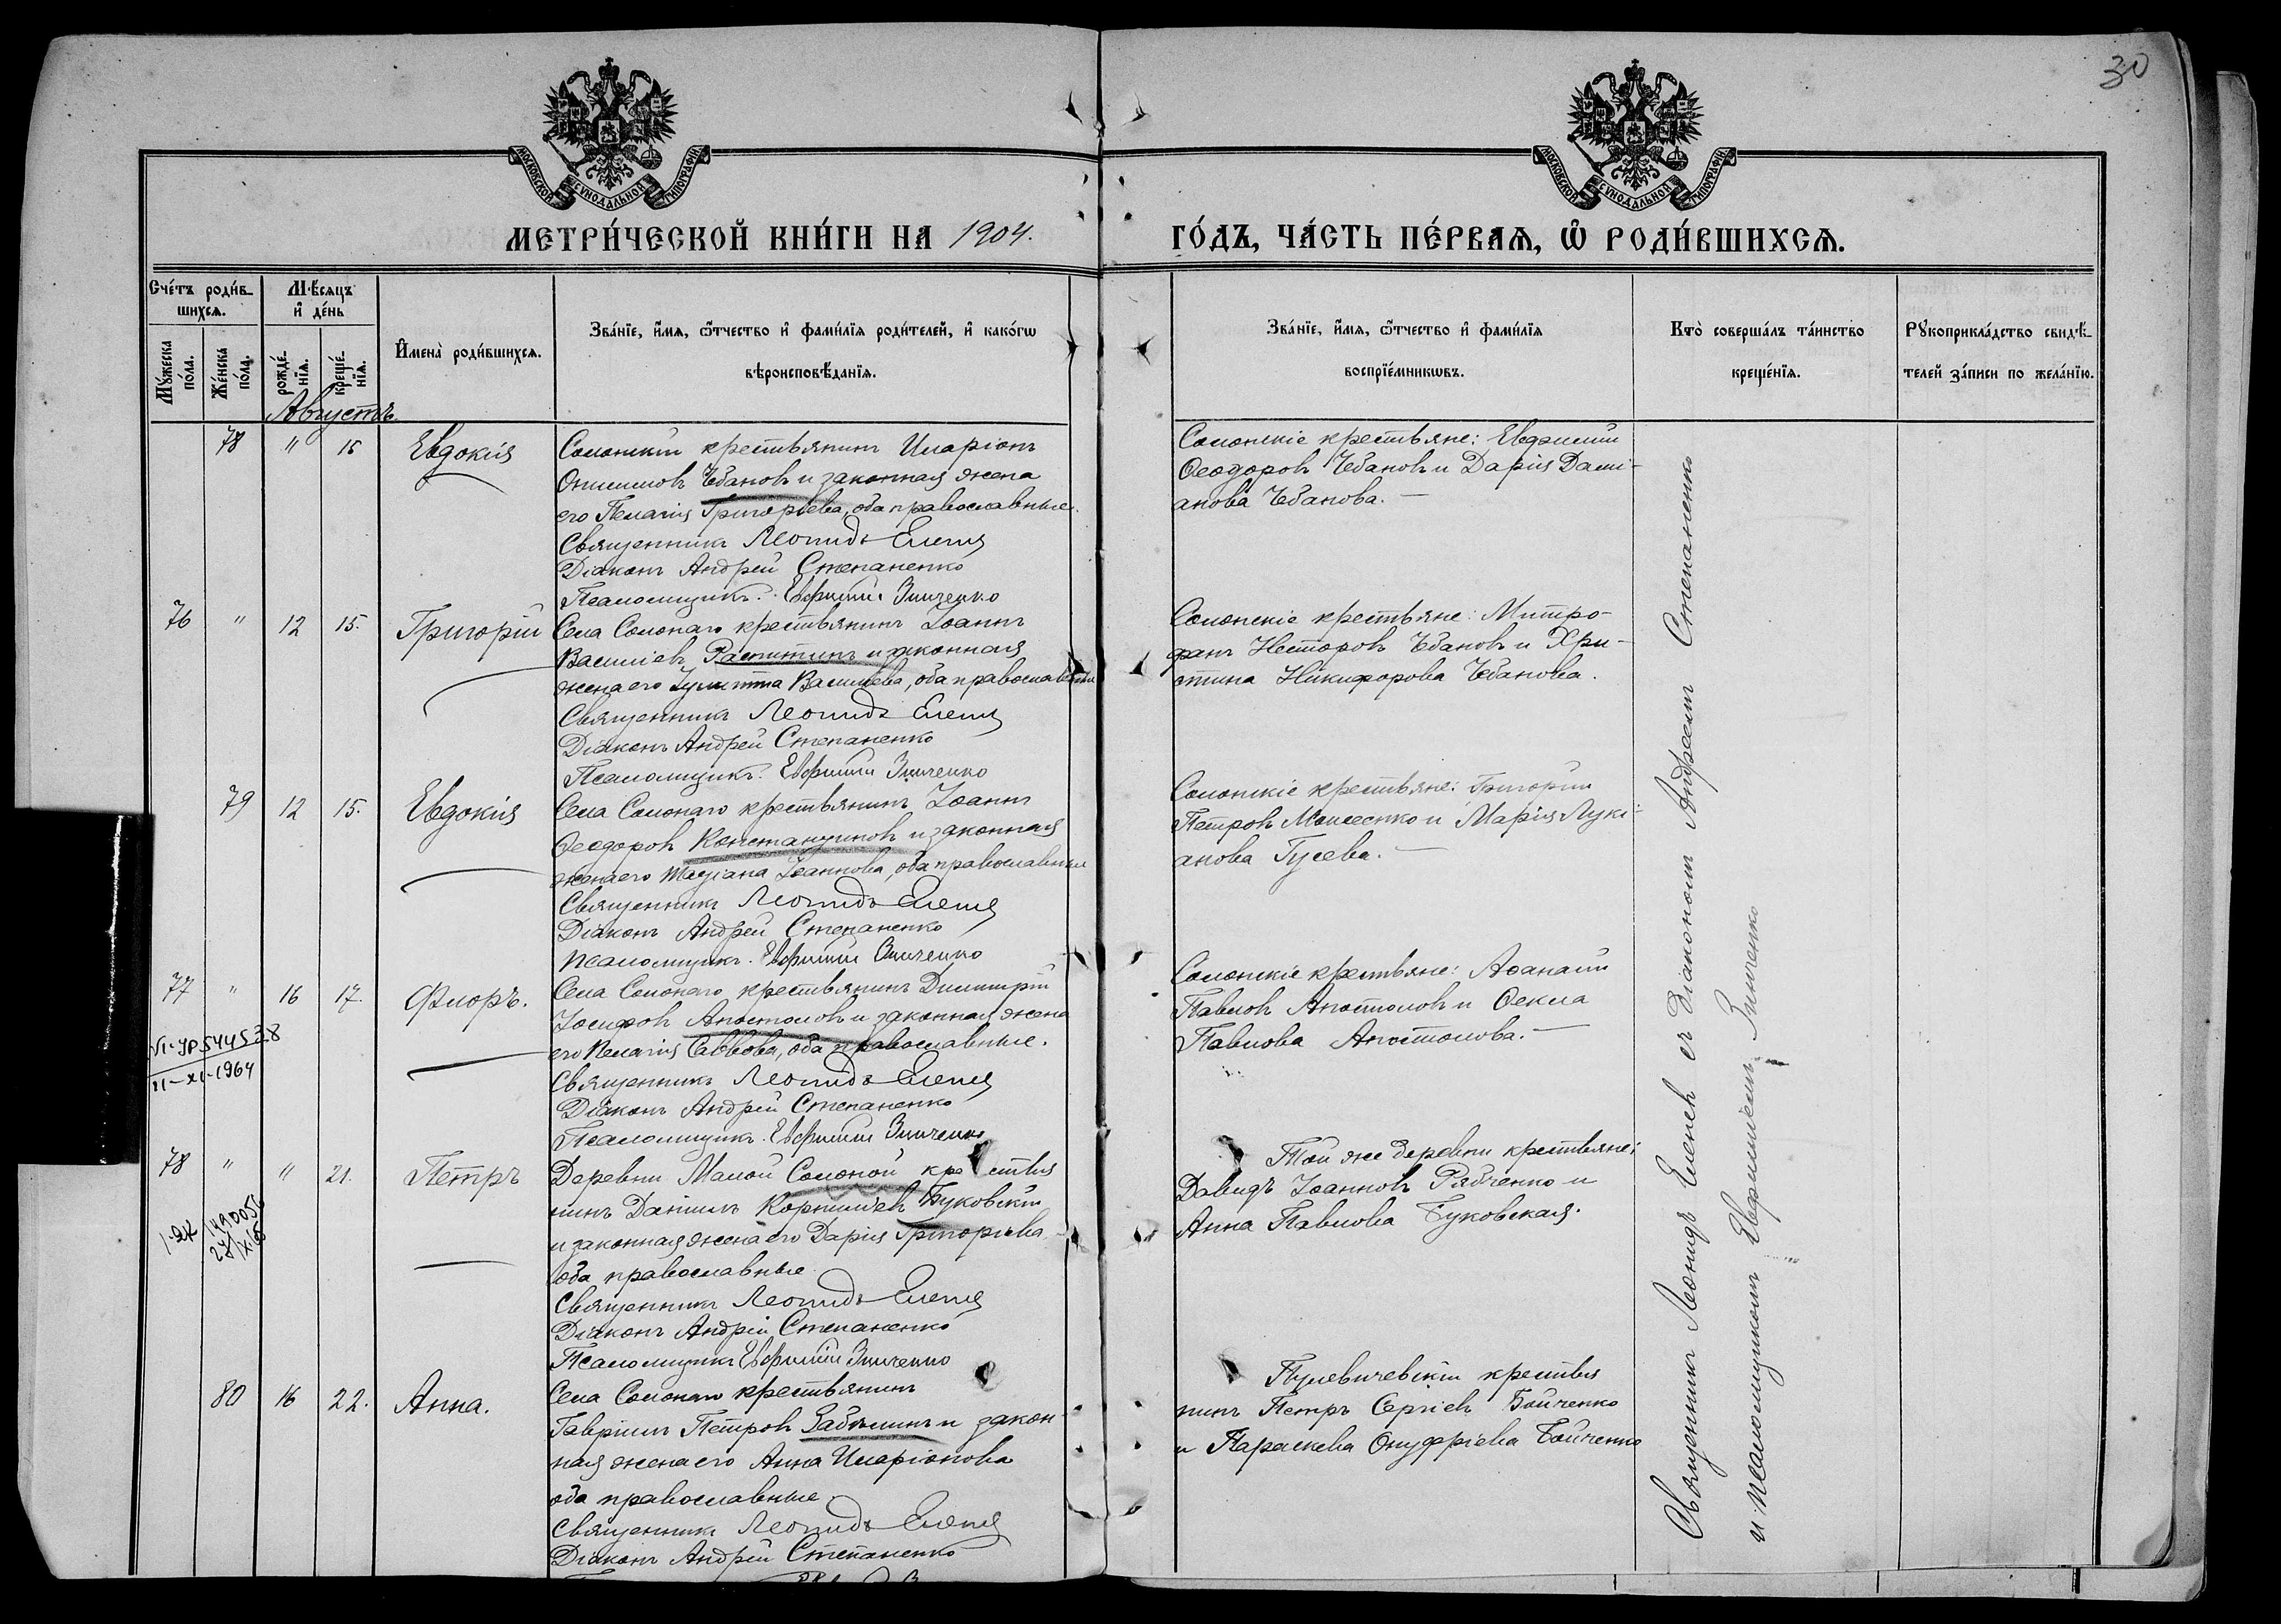 30
МОСКОВСКОЙ СѴНОДАЛЬНОЙ ТИПОГРАФІИ
МОСКОВСКОЙ СѴНОДАЛЬНОЙ ТИПОГРАФІИ
МЕТРИ́ЧЕСКОЙ КНИ́ГИ НА 1904.
ГО́ДЪ, ЧА́СТЬ ПЕ́РВАѦ, Ѽ РОДИ́ВШИХСѦ.
Сче́тъ роди́в-
шихсѧ.
Мѣ́сяцъ
и҆ де́нь
Мꙋ́жеска по́ла.
Же́нска по́ла.
рожде́-
нїѧ.
креще́-
нїѧ.
И҆мена̀ роди́вшихсѧ.
Зва́нїе, и҆́мѧ, ѻ҆́тчество и҆ фами́лїѧ роди́телей, и҆ како́гѡ
вѣроисповѣ́данїѧ.
Зва́нїе, и҆́мѧ, ѻ҆́тчество и҆ фами́лїѧ
воспрїе́мникѡвъ.
Кто̀ соверша́лъ та́инство
креще́нїѧ.
Рꙋкоприкла́дство свидѣ́-
телей за́писи по жела́нїю.
Августъ.
78 " 15 Евдокія
Солонскій крестьянинъ Иларіонъ
Онисимовъ Чебановъ и законная жена
его Пелагія Григоріева, оба православные.
Священникъ Леонидъ Еленев
Діаконъ Андрей Степаненко
Псаломщикъ Евфимій Зинченко
Солонскіе крестьяне: Евфимій
Ѳеодоровъ Чебановъ и Дарія Дамі-
анова Чебанова.
76 " 12 15. Григорій
Села Солонаго крестьянинъ Іоаннъ
Василіевъ Распитинъ и законная
жена его Іулитта Василіева, оба православные
Священникъ Леонидъ Еленев
Діаконъ Андрей Степаненко
Псаломщикъ. Евфимій Зинченко
Солонскіе крестьяне: Митро-
фанъ Несторовъ Чебановъ и Хри-
стина Никифорова Чебанова.
79 12 15. Евдокія
Села Солонаго крестьянинъ Іоаннъ
Ѳеодоровъ Константиновъ и законная
жена его Татіана Іоаннова, оба православные
Священникъ Леонидъ Еленев
Діаконъ Андрей Степаненко
Псаломщикъ. Евфимій Зинченко
Солонскіе крестьяне: Григорій
Петровъ Моисеенко и Марія Лукі-
анова Гусева.
77 " 16 17. Флоръ.
VI-УР 544538
11-XI-1964
Села Солонаго крестьянинъ Димитрій
Іосифовъ Апостоловъ и законная жена
его Пелагія Саввова, оба православные.
Священникъ Леонидъ Еленев
Діаконъ Андрей Степаненко
Псаломщикъ. Евфимій Зинченко
Солонскіе крестьяне: Аѳанасій
Павловъ Апостоловъ и Ѳекла
Павлова Апостолова.
78 " " 21. Петръ
Деревни Малой Солоной крестья
нинъ Даніилъ Корниліевъ Буковскій
и законная жена его Дарія Григоріева
оба православные
Священникъ Леонидъ Еленев
Діаконъ Андрей Степаненко
Псаломщикъ Евфимій Зинченко
Той же деревни крестьяне:
Давидъ Іоанновъ Рябченко и
Анна Павлова Буковская.
80 16 22. Анна.
Села Солонаго крестьянинъ
Гавріилъ Петровъ Забѣлинъ и закон-
ная жена его Анна Иларіонова
оба православные
Священникъ Леонидъ Еленев
Діаконъ Андрей Степаненко
крестья
нинъ Петръ Сергіевъ Бойченко
и Параскева Онуфріева Бойченко
Священникъ Леонидъ Еленевъ съ Діакономъ Андреемъ Степаненко
и псаломщикомъ Евфиміемъ Зинченко